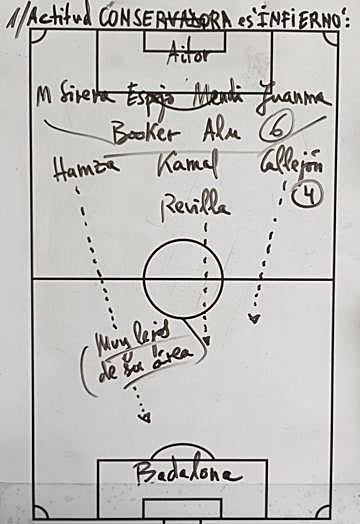 1/Actitud CONSERVADORA es "INFIERNO":
Aitor
M Sirera Espejo Mendi Juanma
Booker Alu 6
Hamza Kamal Callejón
4
Revilla
Muy lejos
de su área
Badalona